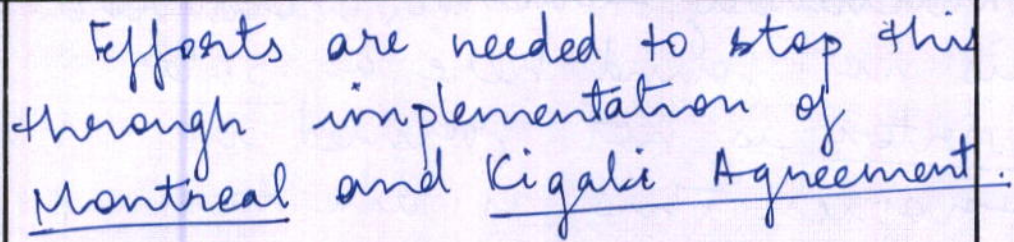 Efforts are needed to stop this
through implementation of
Montreal and Kigali Agreement.